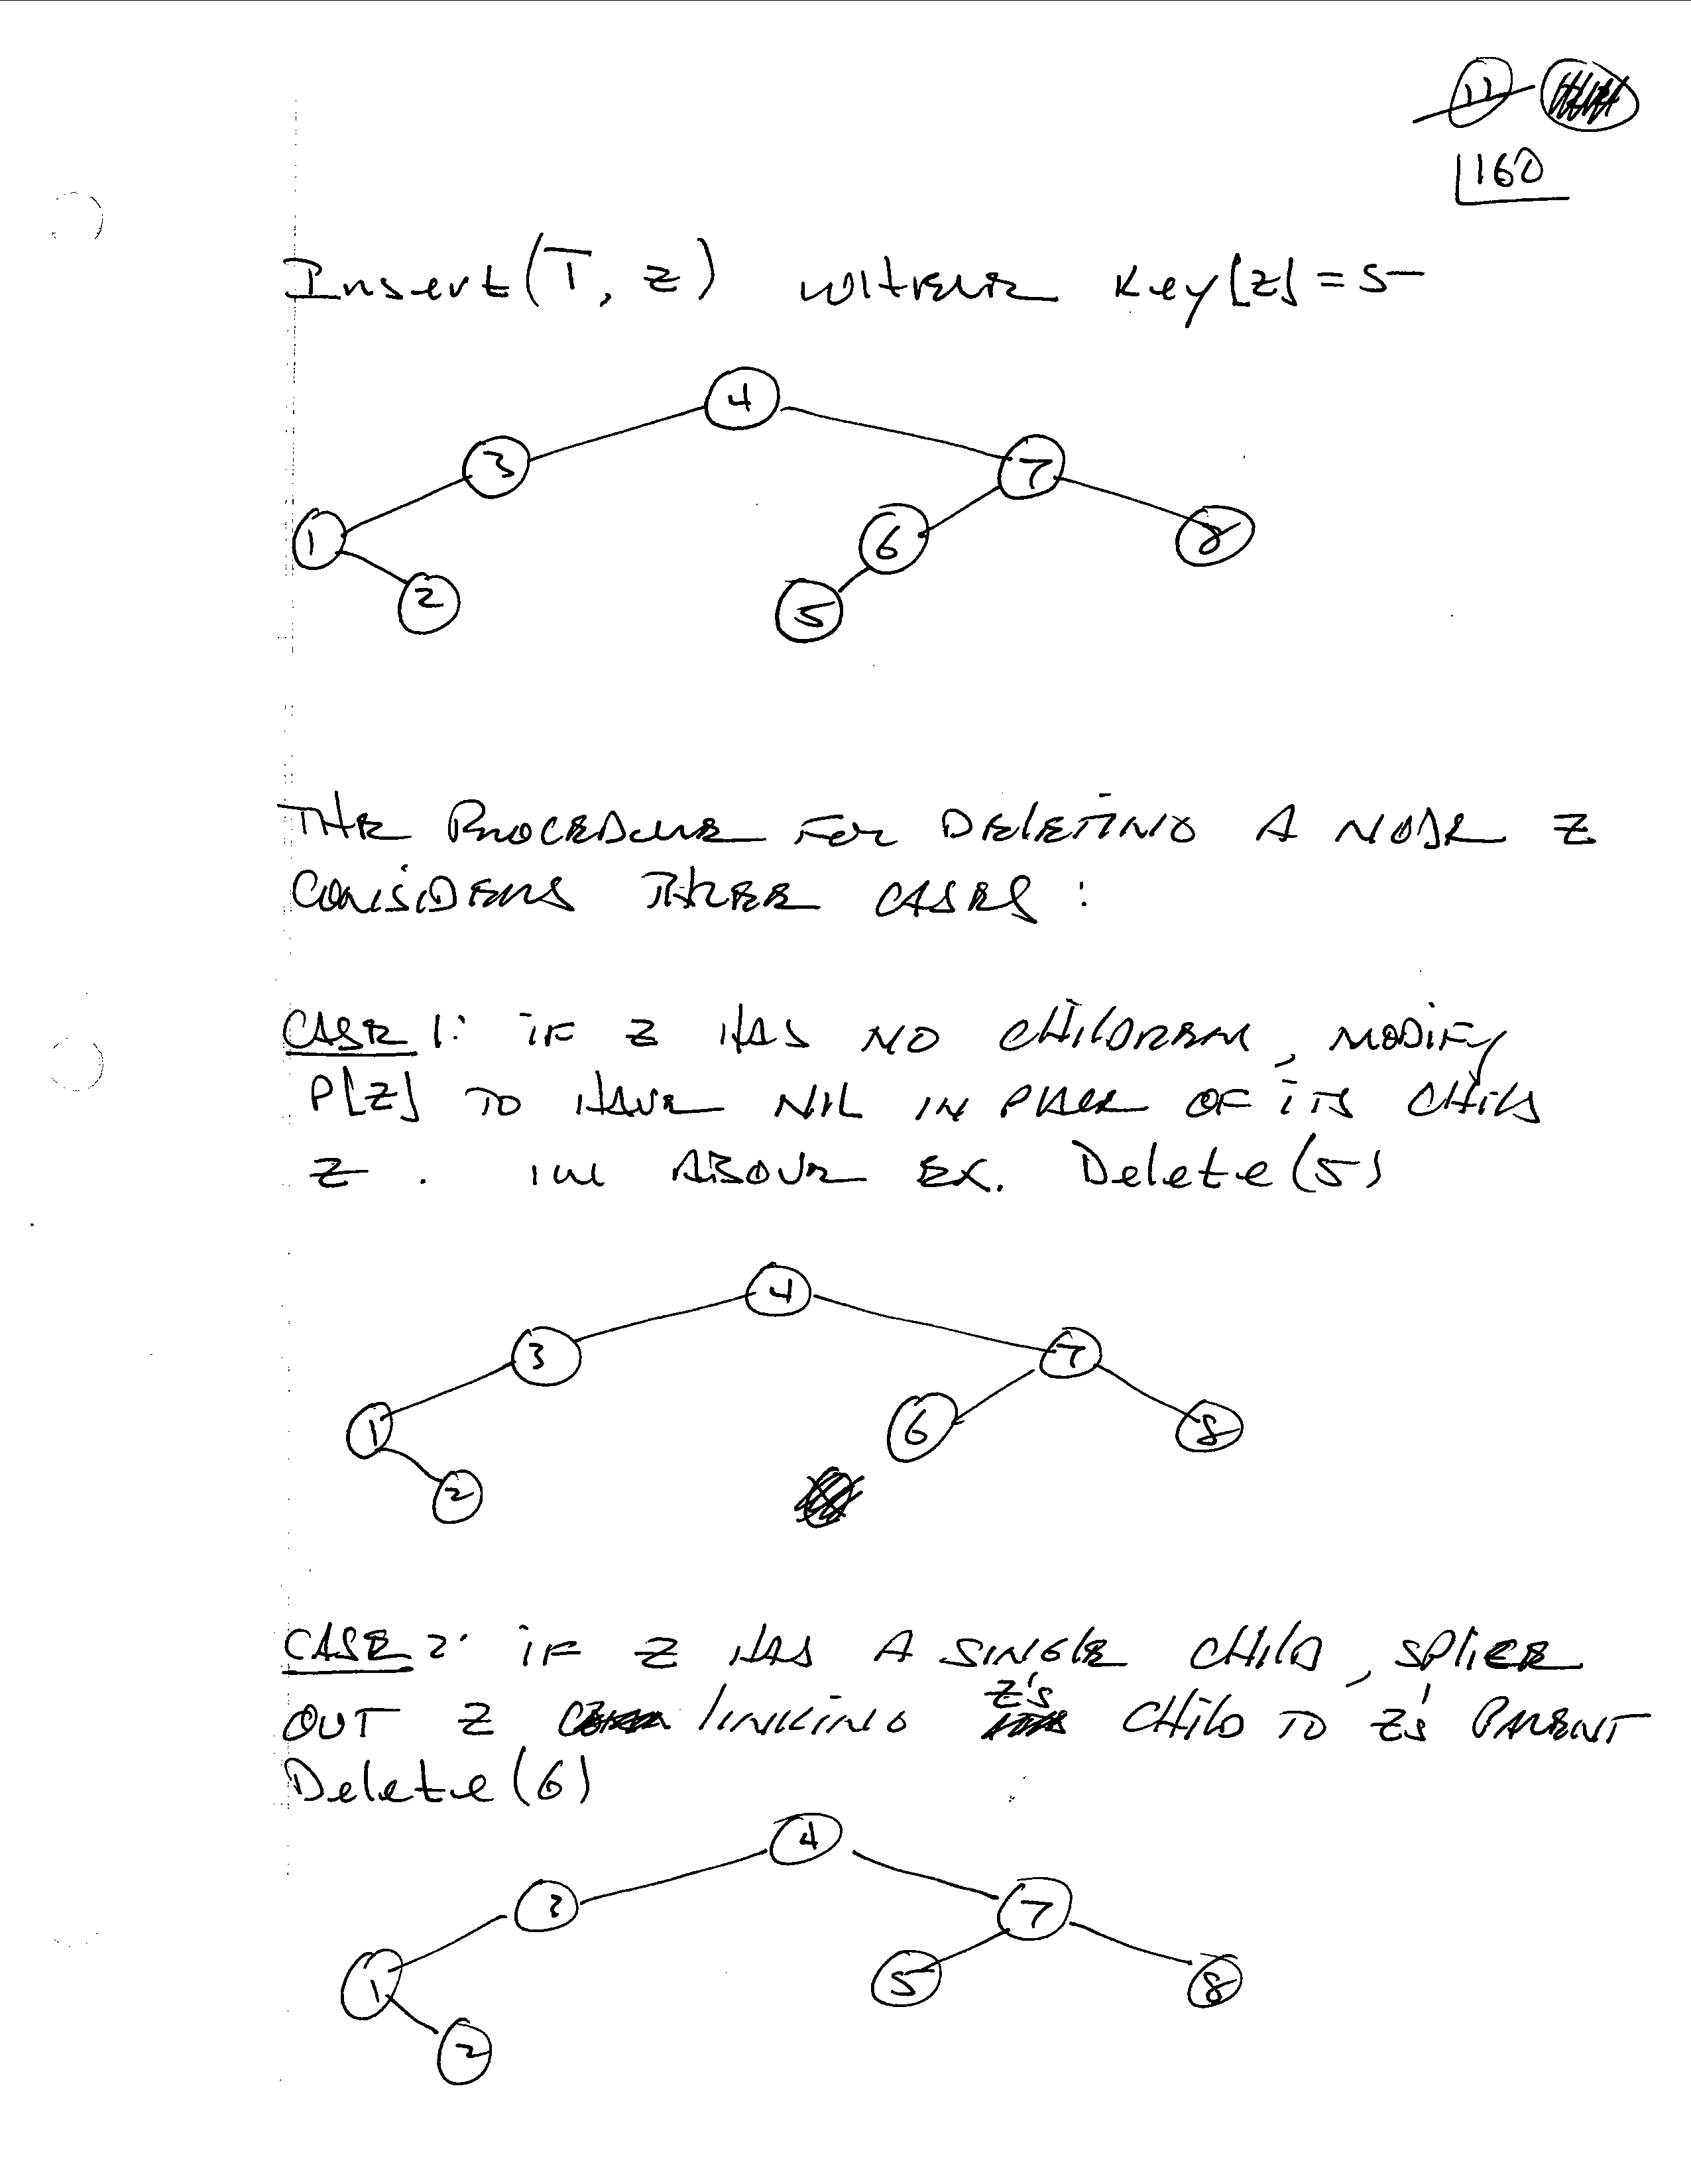 11
160
Insert(T, z) where key[z] = 5
4
3 7
1 6 8
2 5
THE PROCEDURE FOR DELETING A NODE Z
CONSIDERS THREE CASES:
CASE 1: IF Z HAS NO CHILDREN, MODIFY
P[Z] TO HAVE NIL IN PLACE OF ITS CHILD
Z. IN ABOVE EX. Delete(5)
4
3 7
1 6 8
2
CASE 2: IF Z HAS A SINGLE CHILD, SPLICE
OUT Z LINKING Z's CHILD TO Z's PARENT
Delete(6)
4
3 7
1 5 8
2